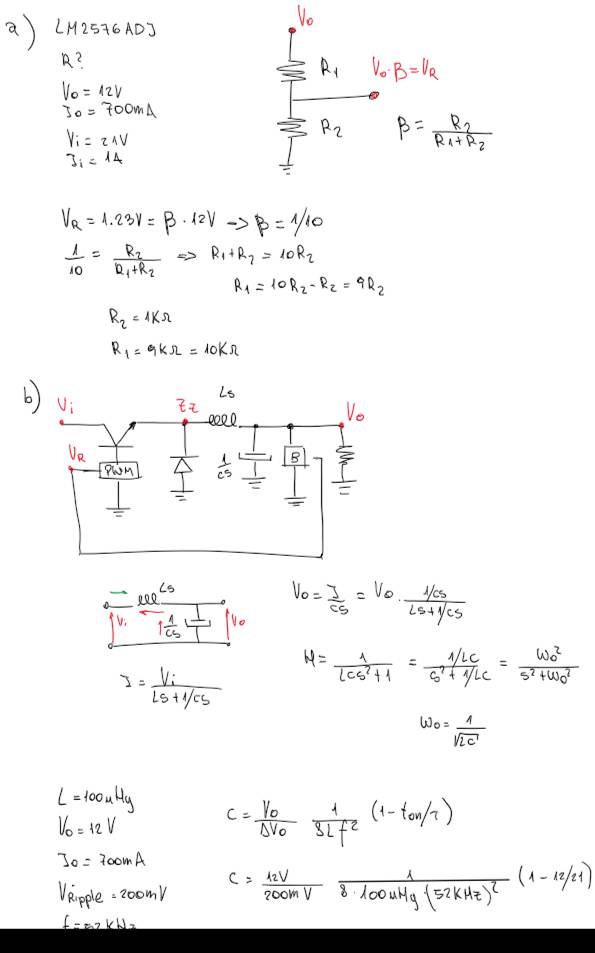 a) LM2576ADJ
R?
Vo = 12V
Io = 700mA
Vi = 21V
Ii = 1A
Vo
R1
Vo·β = VR
R2
β = R2/(R1+R2)
VR = 1.23V = β · 12V -> β = 1/10
1/10 = R2/(R1+R2) => R1+R2 = 10R2
R1 = 10R2 - R2 = 9R2
R2 = 1KΩ
R1 = 9KΩ = 10KΩ
b)
Ls
Vi
Zz
Vo
VR
PWM
1/cs
B
Ls
Vi
1/cs
Vo
I = Vi/(Ls + 1/cs)
Vo = I/cs = Vo · (1/cs)/(Ls+1/cs)
H = 1/(LCs²+1) = (1/LC)/(s²+1/LC) = ωo²/(s²+ωo²)
ωo = 1/√LC
L = 100uHy
Vo = 12V
Io = 700mA
VRipple = 200mV
f = 52KHz
C = Vo/ΔVo 1/(8Lf²) (1 - ton/τ)
C = 12V/200mV 1/(8·100uHy(52KHz)²) (1 - 12/21)